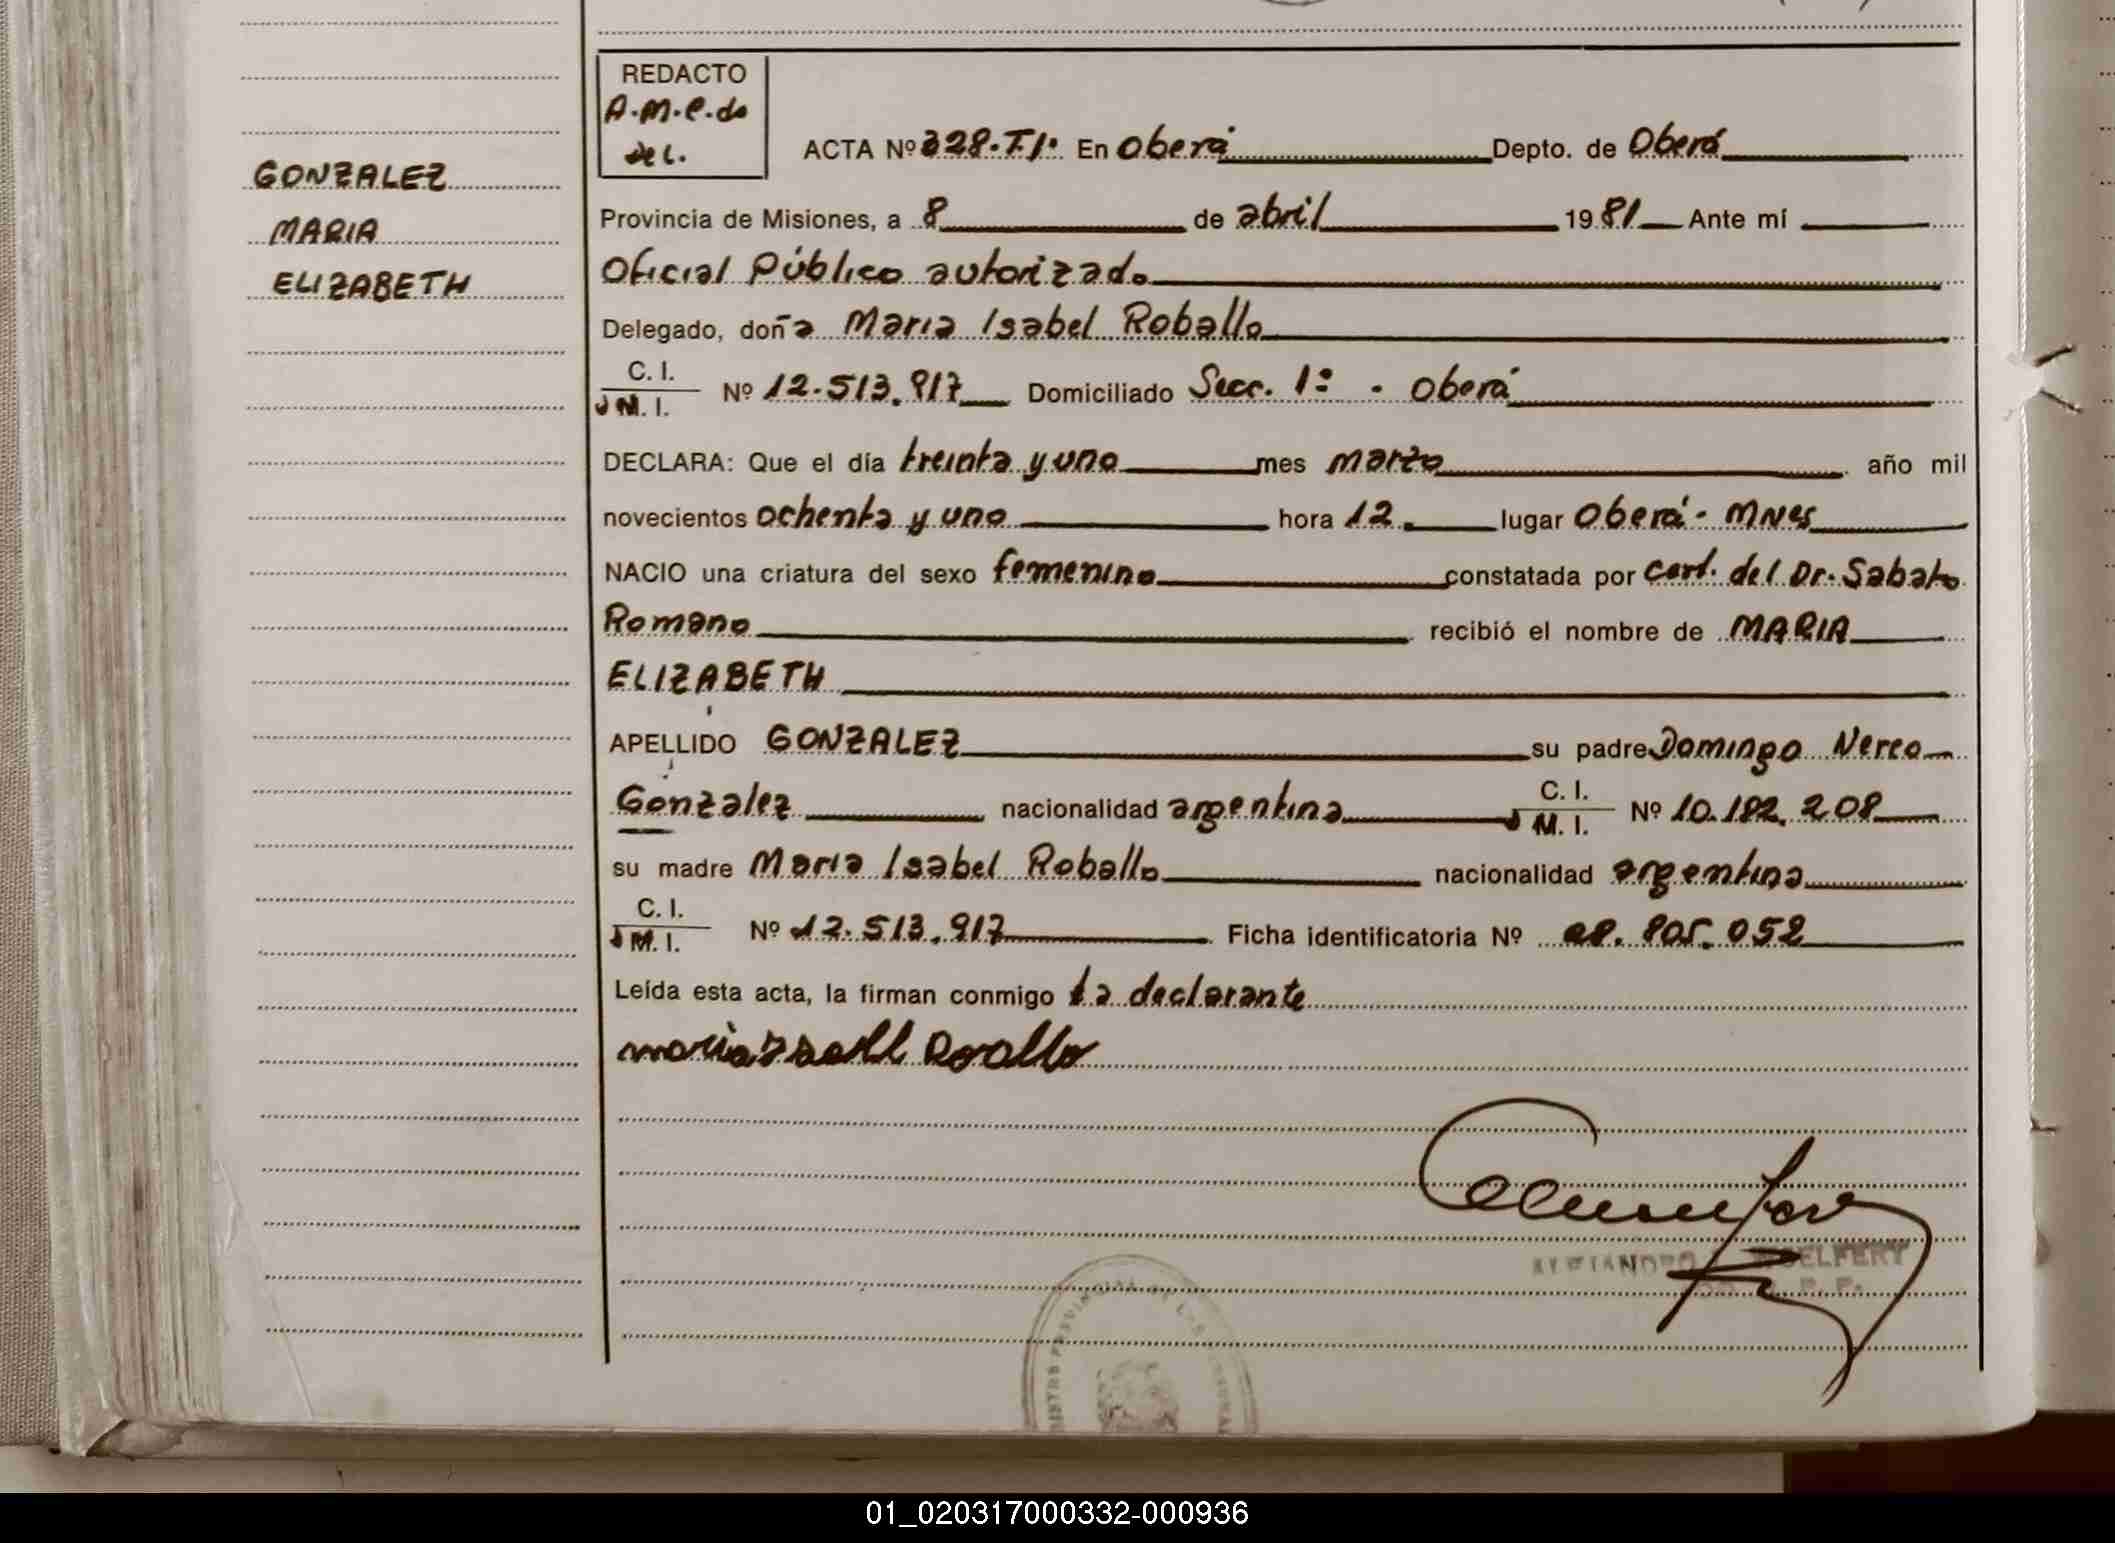 GONZALEZ
MARIA
ELIZABETH
REDACTO
A.M.C.do
del.
ACTA Nº 328.T.1º. En Oberá Depto. de Oberá
Provincia de Misiones, a 8 de abril 1981 Ante mí
Oficial Público autorizado
Delegado, doña Maria Isabel Roballo
C. I.
M. I. Nº 12.513.917 Domiciliado Secc. 1º - Oberá
DECLARA: Que el día treinta y uno mes marzo año mil
novecientos ochenta y uno hora 12. lugar Oberá - Mnes
NACIO una criatura del sexo femenino constatada por cert. del Dr. Sabato
Romano recibió el nombre de MARIA
ELIZABETH
APELLIDO GONZALEZ su padre Domingo Nereo
Gonzalez nacionalidad argentina C. I.
M. I. Nº 10.182.208
su madre Maria Isabel Roballo nacionalidad argentina
C. I.
M. I. Nº 12.513.917 Ficha identificatoria Nº 28.805.052
Leída esta acta, la firman conmigo la declarante
maria Isabel Roballo
ALEJANDRO
01_020317000332-000936